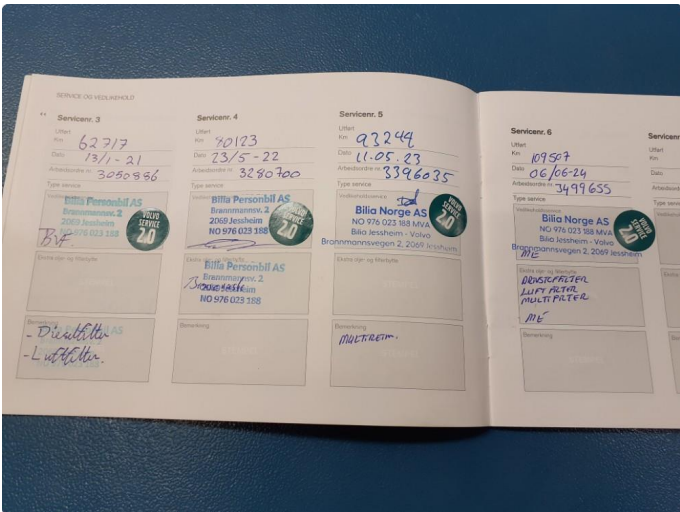 SERVICE OG VEDLIKEHOLD
Servicenr. 3
Utført
Km 62717
Dato 13/1-21
Arbeidsordre nr. 3050886
Type service
Bilia Personbil AS
Brannmannsv. 2
2069 Jessheim
NO 976 023 188
VOLVO SERVICE 2.0
Ekstra olje- og filterbytte
Bemerkning
- Dieselfilter
- Luftfilter
Servicenr. 4
Utført
Km 80123
Dato 23/5-22
Arbeidsordre nr. 3280700
Type service
Bilia Personbil AS
Brannmannsv. 2
2069 Jessheim
NO 976 023 188
VOLVO SERVICE 2.0
Ekstra olje- og filterbytte
Bilia Personbil AS
Brannmannsv. 2
2069 Jessheim
NO 976 023 188
Bemerkning
Servicenr. 5
Utført
Km 93244
Dato 11.05.23
Arbeidsordre nr. 3396035
Type service
Vedlikeholdsservice
Bilia Norge AS
NO 976 023 188 MVA
Bilia Jessheim - Volvo
Brannmannsvegen 2, 2069 Jessheim
VOLVO SERVICE 2.0
Ekstra olje- og filterbytte
Bemerkning
MULTIREIM.
Servicenr. 6
Utført
Km 109507
Dato 06/06-24
Arbeidsordre nr. 3499655
Type service
Vedlikeholdsservice
Bilia Norge AS
NO 976 023 188 MVA
Bilia Jessheim - Volvo
Brannmannsvegen 2, 2069 Jessheim
VOLVO SERVICE 2.0
ME
Ekstra olje- og filterbytte
LUFTFILTER
MULTIFILTER
ME
Bemerkning
Servicenr
Utført
Km
Dato